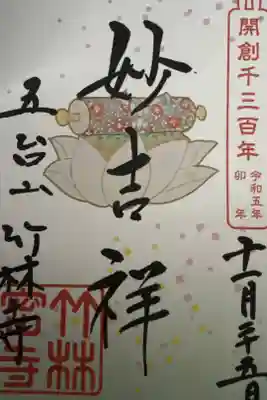 開創千三百年
令和五年
卯年
十一月二十五日
妙吉祥
五台山竹林寺
竹林
寺